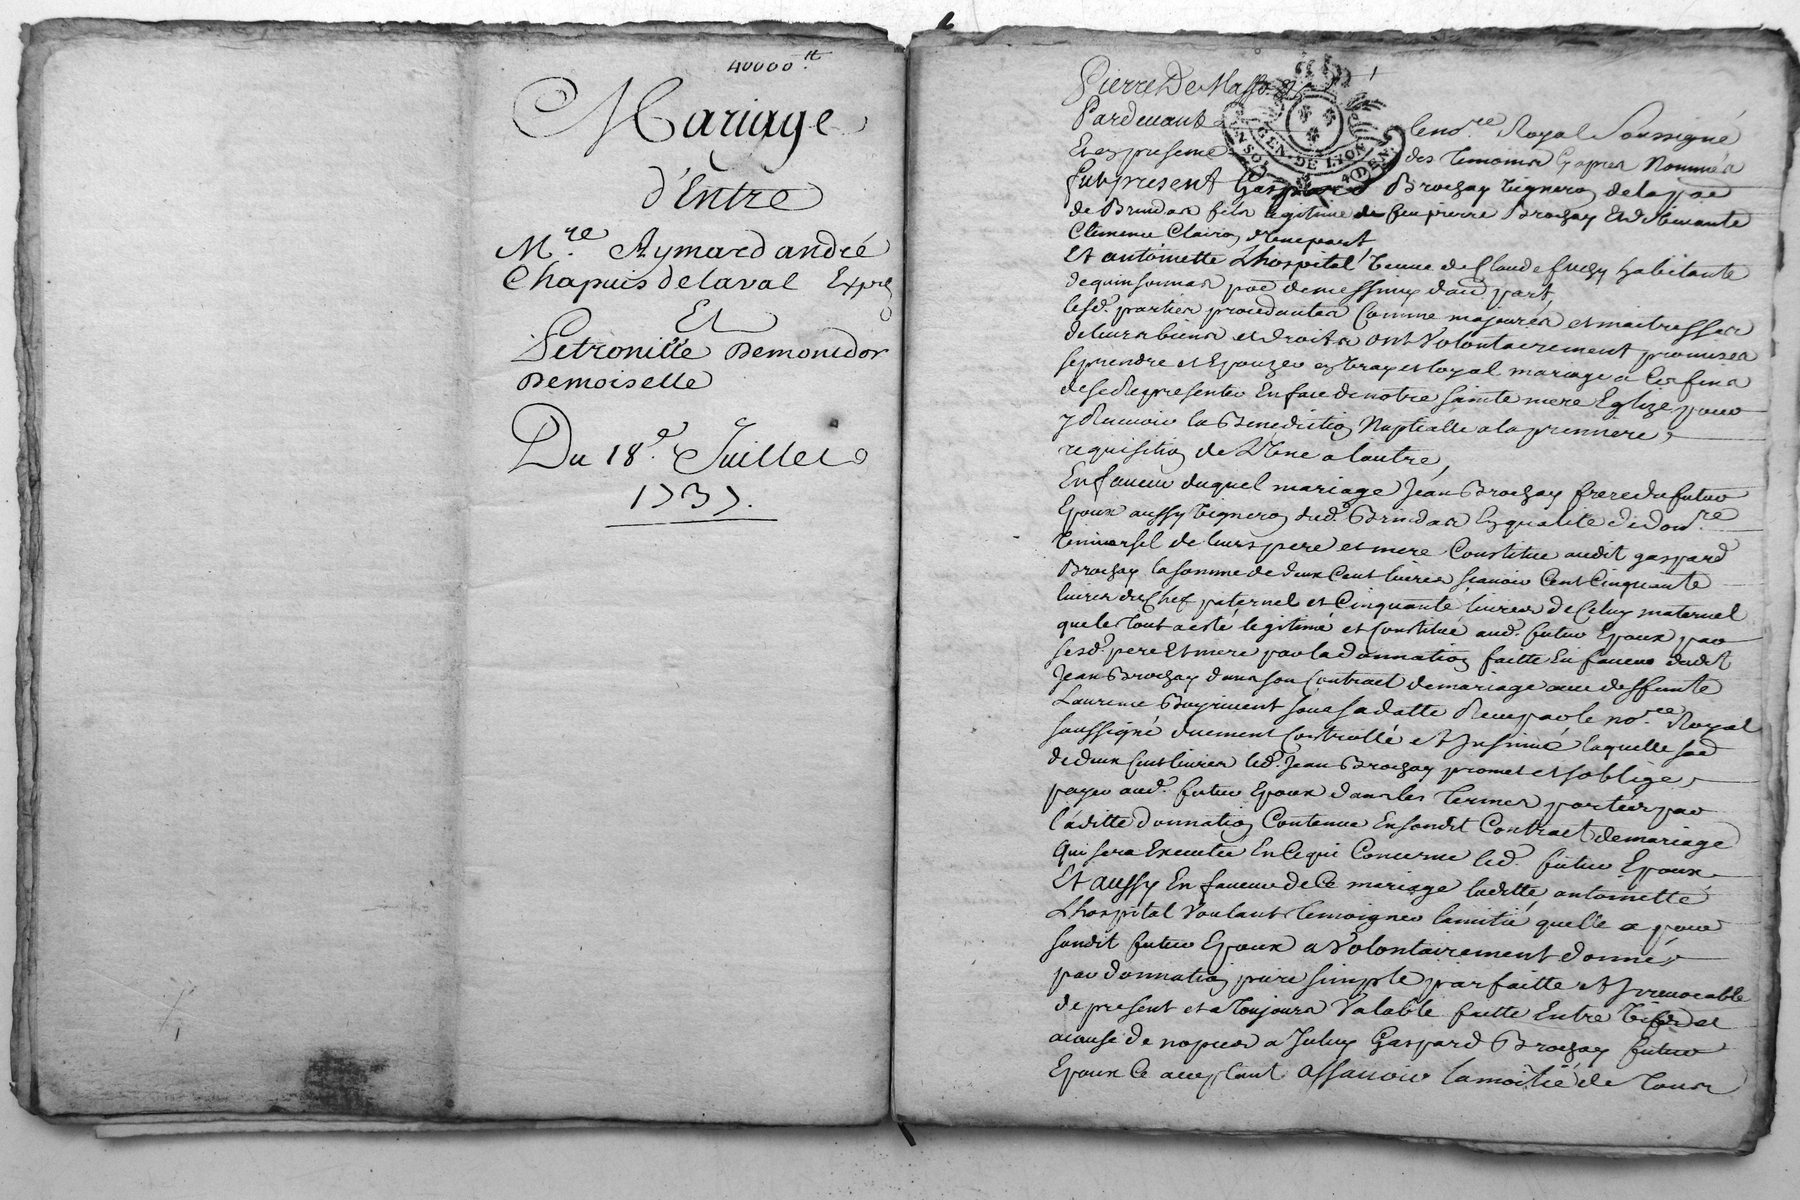 40000 tt
Mariage
d'Entre
Mre Aymard andré
Chapuis delaval Expe
Et
Petronille Demonedor
Demoiselle
Du 18e Juillet
1737.
Pierre De Mass
Pardevant le nore Royal Soussigné
Et en presence des temoins Cyapres Nommés
fut present Gaspard Brochay vigneron de la poe
de Brindas fils legitime de feu pierre Brochay Et de vivante
Clemence Clairon d'une part
Et antoinette Lhospital veuve de Claude habitante
de quinsonnas poe de messimy dautre part,
lesd. parties procedantes Comme majeures et maitresses
de leurs biens et droits ont Volontairement promises
se prendre et Epouzer en vray et loyal mariage a Ces fins
de se Representer En face de notre sainte mere Eglize pour
y Recevoir la Benediction Nuptialle a la premiere
requisition de L'Une a lautre,
En faveur duquel mariage Jean Brochay frere du futur
Epoux aussy vigneron dud. Brindas En qualité de donre
Universel de leurs pere et mere Constitue audit gaspard
Brochay la somme de deux Cent livres scavoir Cent Cinquante
livres du Chef paternel et Cinquante livres de Celuy maternel
que le tout a esté legitimé et Constitué aud. futur Epoux par
sesd. pere Et mere par la donnation faitte En faveur dudit
Jean Brochay dans son Contract de mariage avec deffunte
Laurence Buyrivent sous sa datte Receu par le nore Royal
soussigné duement Controllé et Insinué laquelle sode
de deux Cent livres led. Jean Brochay promet et s'oblige
payer aud. futur Epoux dans les termes portés par
laditte Donnation Contenue En sondit Contract de mariage
qui sera Executée En Ce qui Concerne led. futur Epoux
Et aussy En faveur de Ce mariage laditte antoinette
Lhospital Voulant temoigner lamitié quelle a pour
sondit futur Epoux a Volontairement donné
par donnation pure simple parfaitte et Irrevocable
de present et a toujours Valable faitte Entre Vifs et
a cause de nopces a Iceluy Gaspard Brochay futur
Epoux Ce acceptant assavoir la moitié de tous